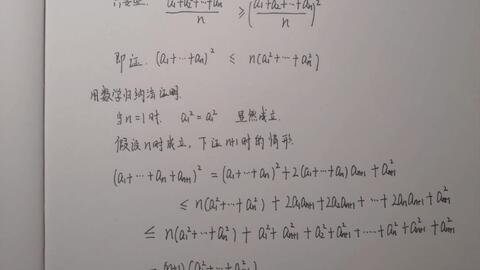 a₁²+a₂²+…+aₙ² / n ≥ (a₁+a₂+…+aₙ / n)²
即证. (a₁+…+aₙ)² ≤ n(a₁²+…+aₙ²)
用数学归纳法证明.
当n=1时. a₁²=a₁² 显然成立.
假设n时成立, 下证n+1时的情形.
(a₁+…+aₙ+aₙ₊₁)² = (a₁+…+aₙ)²+2(a₁+…+aₙ)aₙ₊₁+aₙ₊₁²
≤ n(a₁²+…+aₙ²)+2a₁aₙ₊₁+2a₂aₙ₊₁+…+2aₙaₙ₊₁+aₙ₊₁²
≤ n(a₁²+…+aₙ²)+a₁²+aₙ₊₁²+a₂²+aₙ₊₁²+……+aₙ²+aₙ₊₁²+aₙ₊₁²
= (n+1)(a₁²+…+aₙ₊₁²)